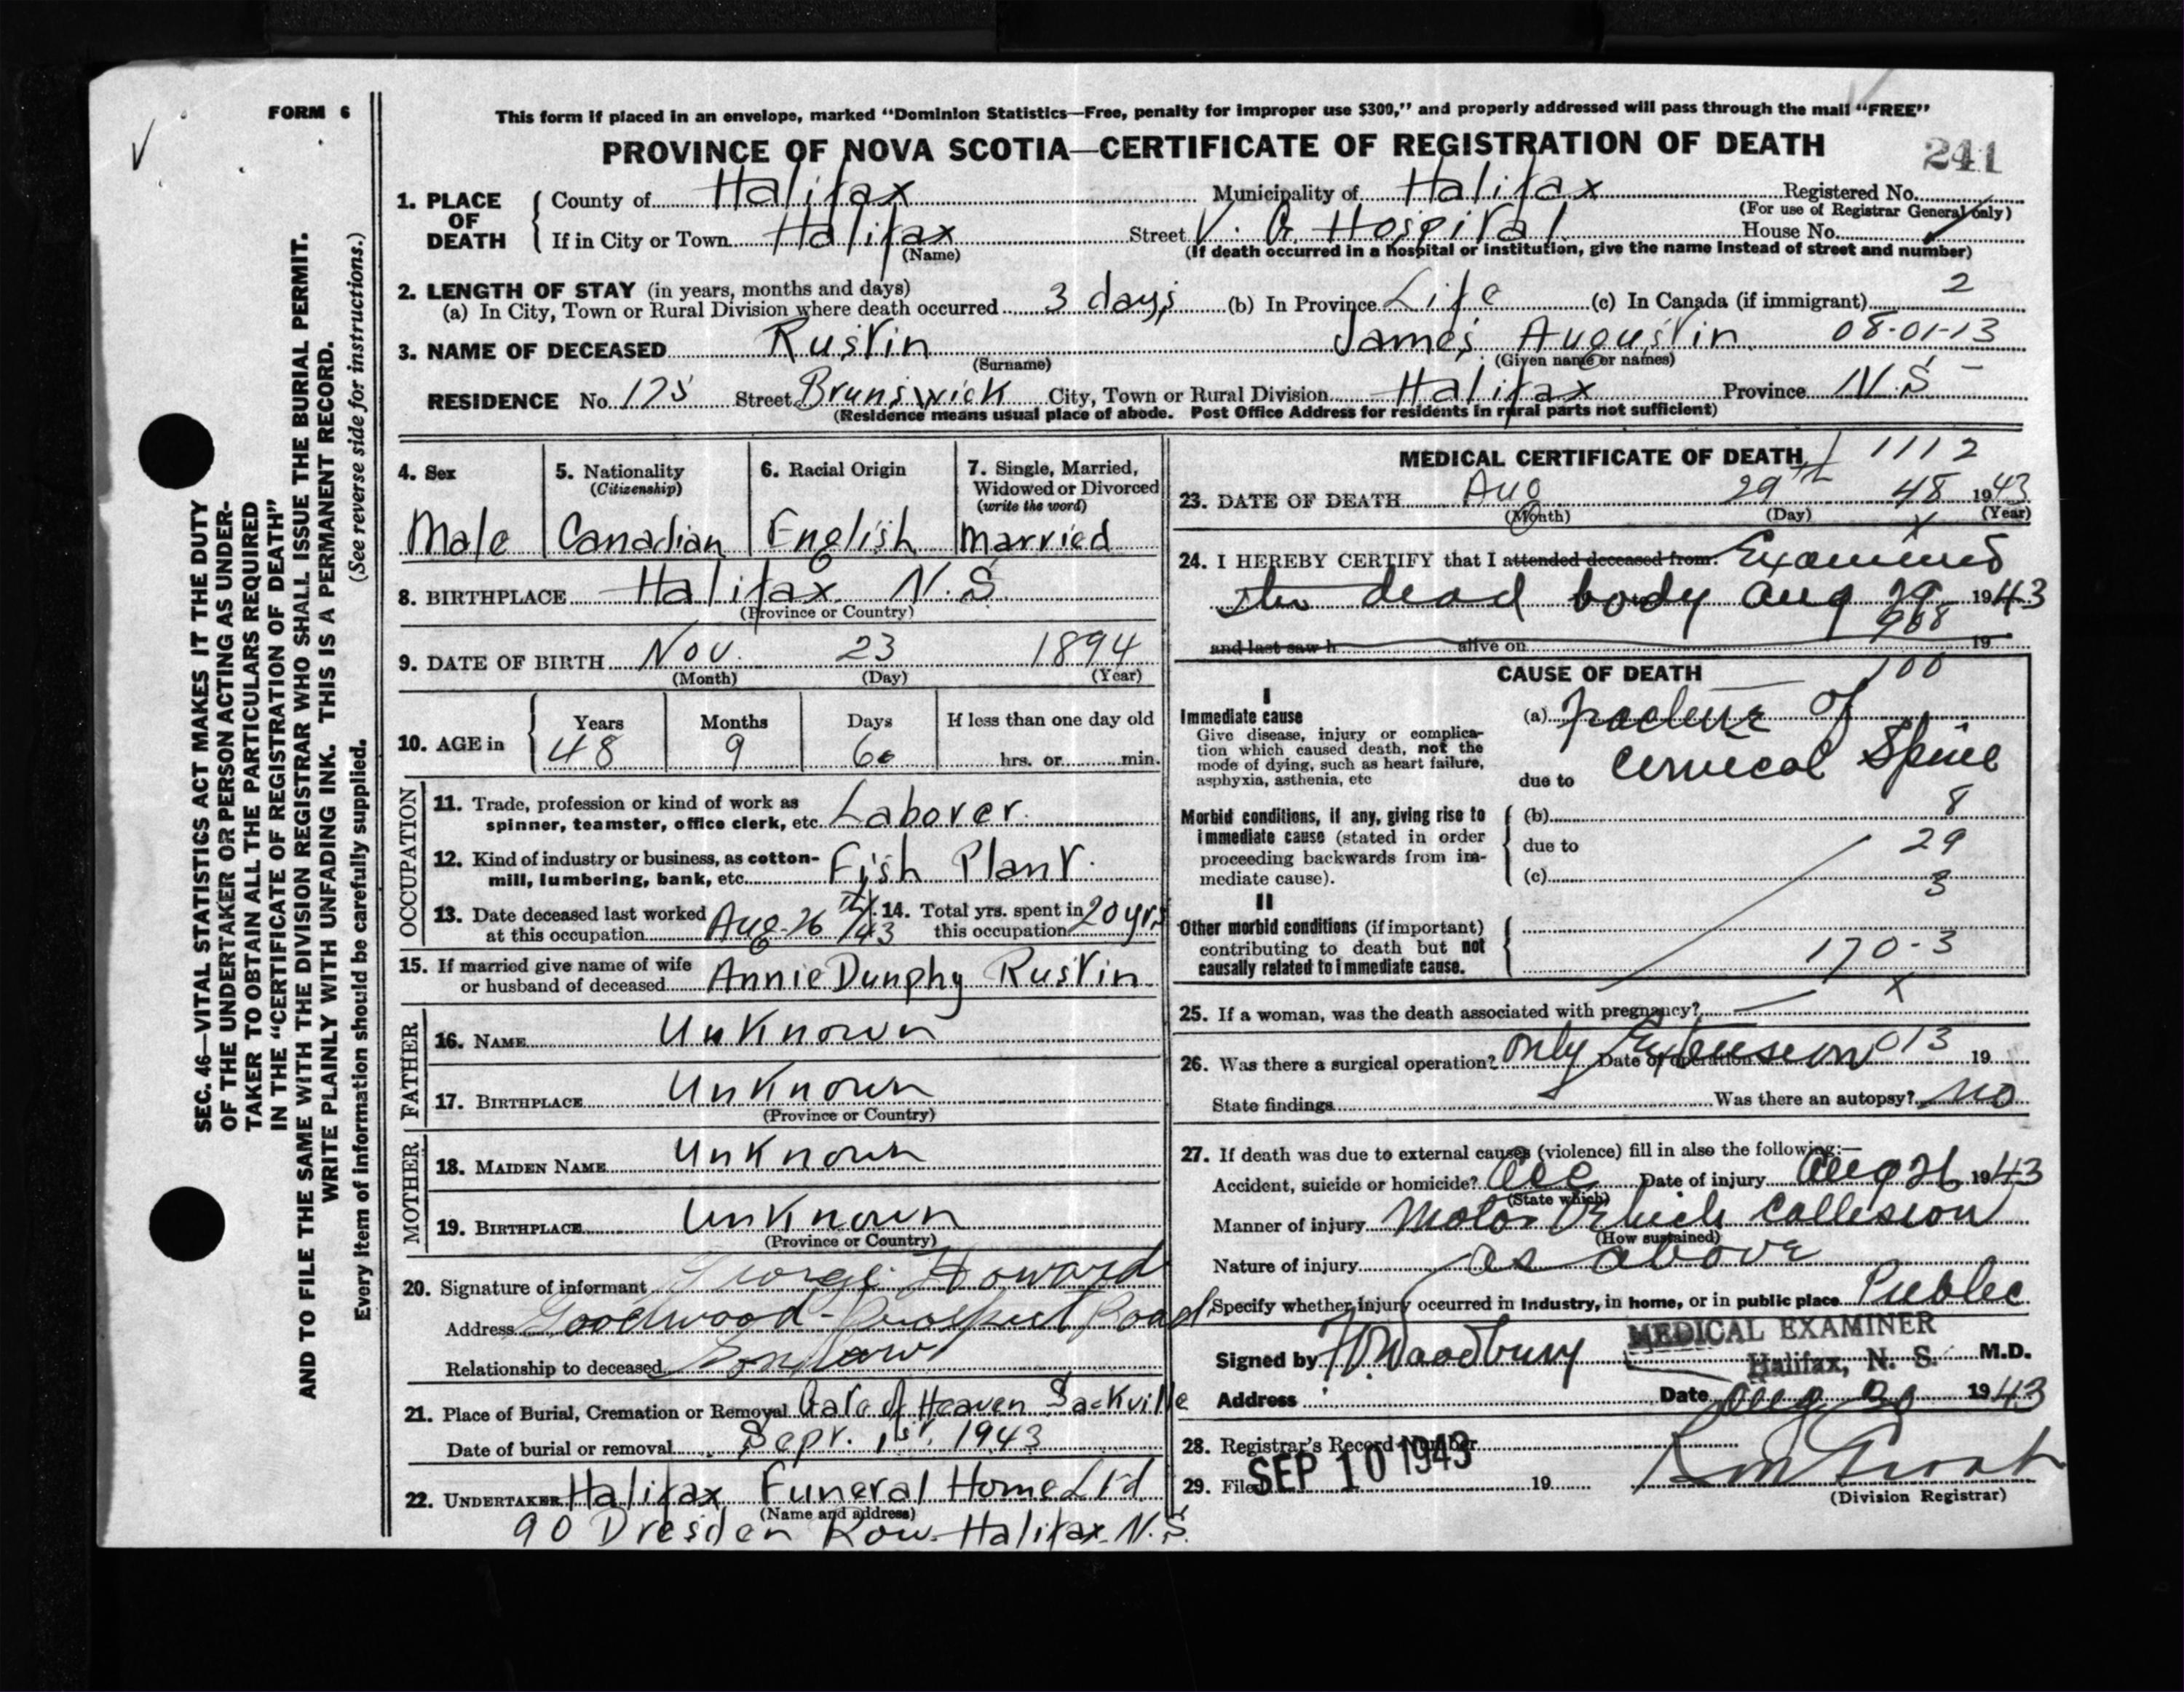 FORM 6
This form if placed in an envelope, marked “Dominion Statistics—Free, penalty for improper use $300,” and properly addressed will pass through the mail “FREE”
PROVINCE OF NOVA SCOTIA—CERTIFICATE OF REGISTRATION OF DEATH
241
1. PLACE OF DEATH County of Halifax Municipality of Halifax Registered No.
(For use of Registrar General only)
If in City or Town Halifax Street V. G. Hospital House No.
(Name) (If death occurred in a hospital or institution, give the name instead of street and number)
2. LENGTH OF STAY (in years, months and days)
(a) In City, Town or Rural Division where death occurred 3 days (b) In Province Life (c) In Canada (if immigrant) 2
3. NAME OF DECEASED Rustin James Augustin 08-01-13
(Surname) (Given name or names)
RESIDENCE No. 175 Street Brunswick City, Town or Rural Division Halifax Province N.S
(Residence means usual place of abode. Post Office Address for residents in rural parts not sufficient)
4. Sex
Male
5. Nationality
(Citizenship)
Canadian
6. Racial Origin
English
7. Single, Married,
Widowed or Divorced
(write the word)
Married
8. BIRTHPLACE Halifax N.S
(Province or Country)
9. DATE OF BIRTH Nov. 23 1894
(Month) (Day) (Year)
10. AGE in
Years Months Days If less than one day old
48 9 6 hrs. or min.
OCCUPATION
11. Trade, profession or kind of work as
spinner, teamster, office clerk, etc. Laborer.
12. Kind of industry or business, as cotton-
mill, lumbering, bank, etc. Fish Plant.
13. Date deceased last worked
at this occupation Aug-26th/43
14. Total yrs. spent in
this occupation 20 yrs
15. If married give name of wife
or husband of deceased Annie Dunphy Rustin
FATHER
16. NAME Unknown
17. BIRTHPLACE Unknown
(Province or Country)
MOTHER
18. MAIDEN NAME Unknown
19. BIRTHPLACE Unknown
(Province or Country)
20. Signature of informant George Howard
Address Goodwood - Prospect Road
Relationship to deceased Son in law
21. Place of Burial, Cremation or Removal Gate of Heaven Sackville
Date of burial or removal Sept. 1st. 1943
22. UNDERTAKER Halifax Funeral Home Ltd
(Name and address)
90 Dresden Row. Halifax. N.S.
MEDICAL CERTIFICATE OF DEATH 1112
23. DATE OF DEATH Aug 29th 48 1943
(Month) (Day) (Year)
24. I HEREBY CERTIFY that I attended deceased from Examined
the dead body Aug 29 1943
968
and last saw h alive on 19
CAUSE OF DEATH 100
I
Immediate cause
Give disease, injury or complica-
tion which caused death, not the
mode of dying, such as heart failure,
asphyxia, asthenia, etc
(a) Fracture of
due to Cervical Spine
8
Morbid conditions, if any, giving rise to
immediate cause (stated in order
proceeding backwards from im-
mediate cause).
(b)
due to 29
(c) 3
II
Other morbid conditions (if important)
contributing to death but not
causally related to immediate cause.
170-3
x
25. If a woman, was the death associated with pregnancy?
26. Was there a surgical operation? Only Extension Date of operation 013 19
State findings Was there an autopsy? no
27. If death was due to external causes (violence) fill in also the following:—
Accident, suicide or homicide? Acc Date of injury Aug 26 1943
(State which)
Manner of injury Motor Vehicle Collision
(How sustained)
Nature of injury as above
Specify whether injury occurred in industry, in home, or in public place Public
Signed by Woodbury MEDICAL EXAMINER
Halifax, N. S. M.D.
Address Date Aug 1943
28. Registrar's Record Number
29. Filed SEP 10 1943 19
(Division Registrar)
SEC. 46—VITAL STATISTICS ACT MAKES IT THE DUTY
OF THE UNDERTAKER OR PERSON ACTING AS UNDER-
TAKER TO OBTAIN ALL THE PARTICULARS REQUIRED
IN THE “CERTIFICATE OF REGISTRATION OF DEATH”
AND TO FILE THE SAME WITH THE DIVISION REGISTRAR WHO SHALL ISSUE THE BURIAL PERMIT.
WRITE PLAINLY WITH UNFADING INK. THIS IS A PERMANENT RECORD.
Every item of information should be carefully supplied. (See reverse side for instructions.)